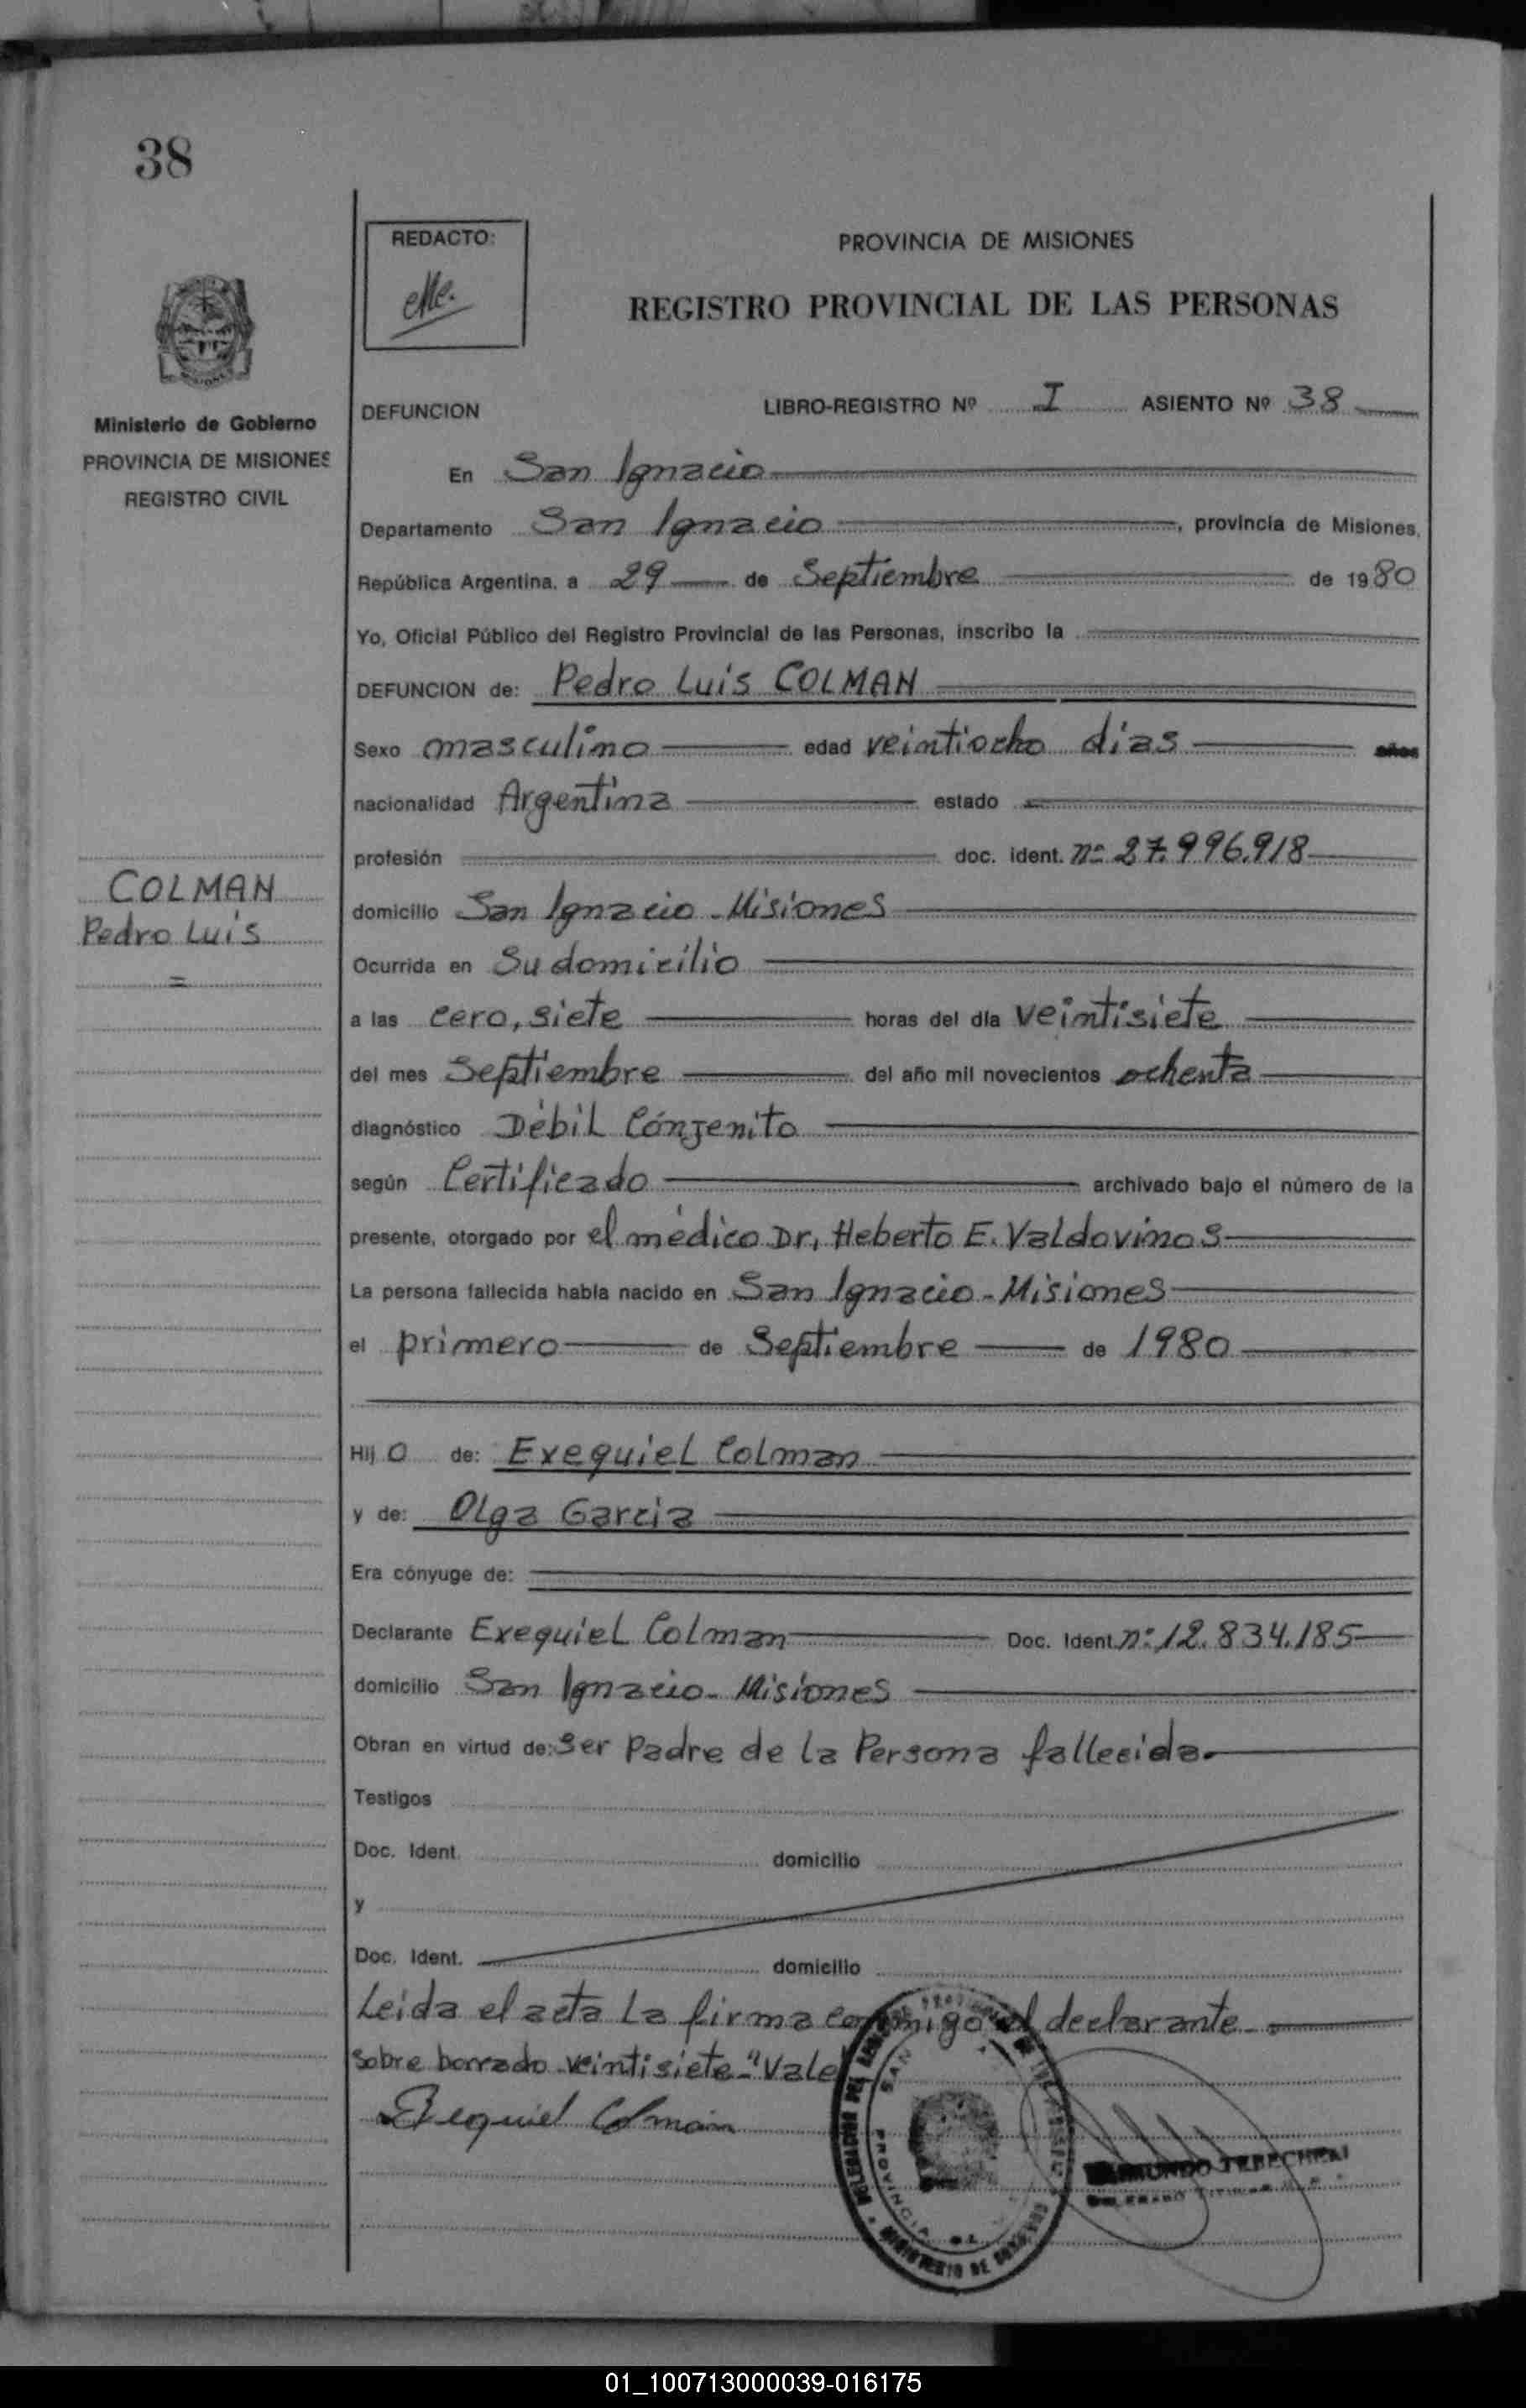 38
REDACTO:
PROVINCIA DE MISIONES
REGISTRO PROVINCIAL DE LAS PERSONAS
Ministerio de Gobierno
PROVINCIA DE MISIONES
REGISTRO CIVIL
DEFUNCION LIBRO-REGISTRO Nº I ASIENTO Nº 38
En San Ignacio
Departamento San Ignacio, provincia de Misiones,
República Argentina, a 29 de Septiembre de 1980
Yo, Oficial Público del Registro Provincial de las Personas, inscribo la
DEFUNCION de: Pedro Luis COLMAN
Sexo masculino edad veintiocho dias años
nacionalidad Argentina estado
profesión doc. ident. nº 27.996.918
COLMAN
Pedro Luis
=
domicilio San Ignacio - Misiones
Ocurrida en Su domicilio
a las cero, siete horas del día veintisiete
del mes Septiembre del año mil novecientos ochenta
diagnóstico Débil Cónjenito
según Certificado archivado bajo el número de la
presente, otorgado por el médico Dr, Heberto E. Valdovinos
La persona fallecida había nacido en San Ignacio - Misiones
el primero de Septiembre de 1980
Hij o de: Exequiel Colman
y de: Olga Garcia
Era cónyuge de:
Declarante Exequiel Colman Doc. Ident. nº 12.834.185
domicilio San Ignacio - Misiones
Obran en virtud de: Ser Padre de la Persona fallecida.
Testigos
Doc. Ident. domicilio
y
Doc. Ident. domicilio
Leida el acta La firma conmigo el declarante.
Sobre borrado veintisiete-"Vale
Exequiel Colman
SAN
PROVINCIA DE
MINISTERIO DE GOBIERNO
01_100713000039-016175